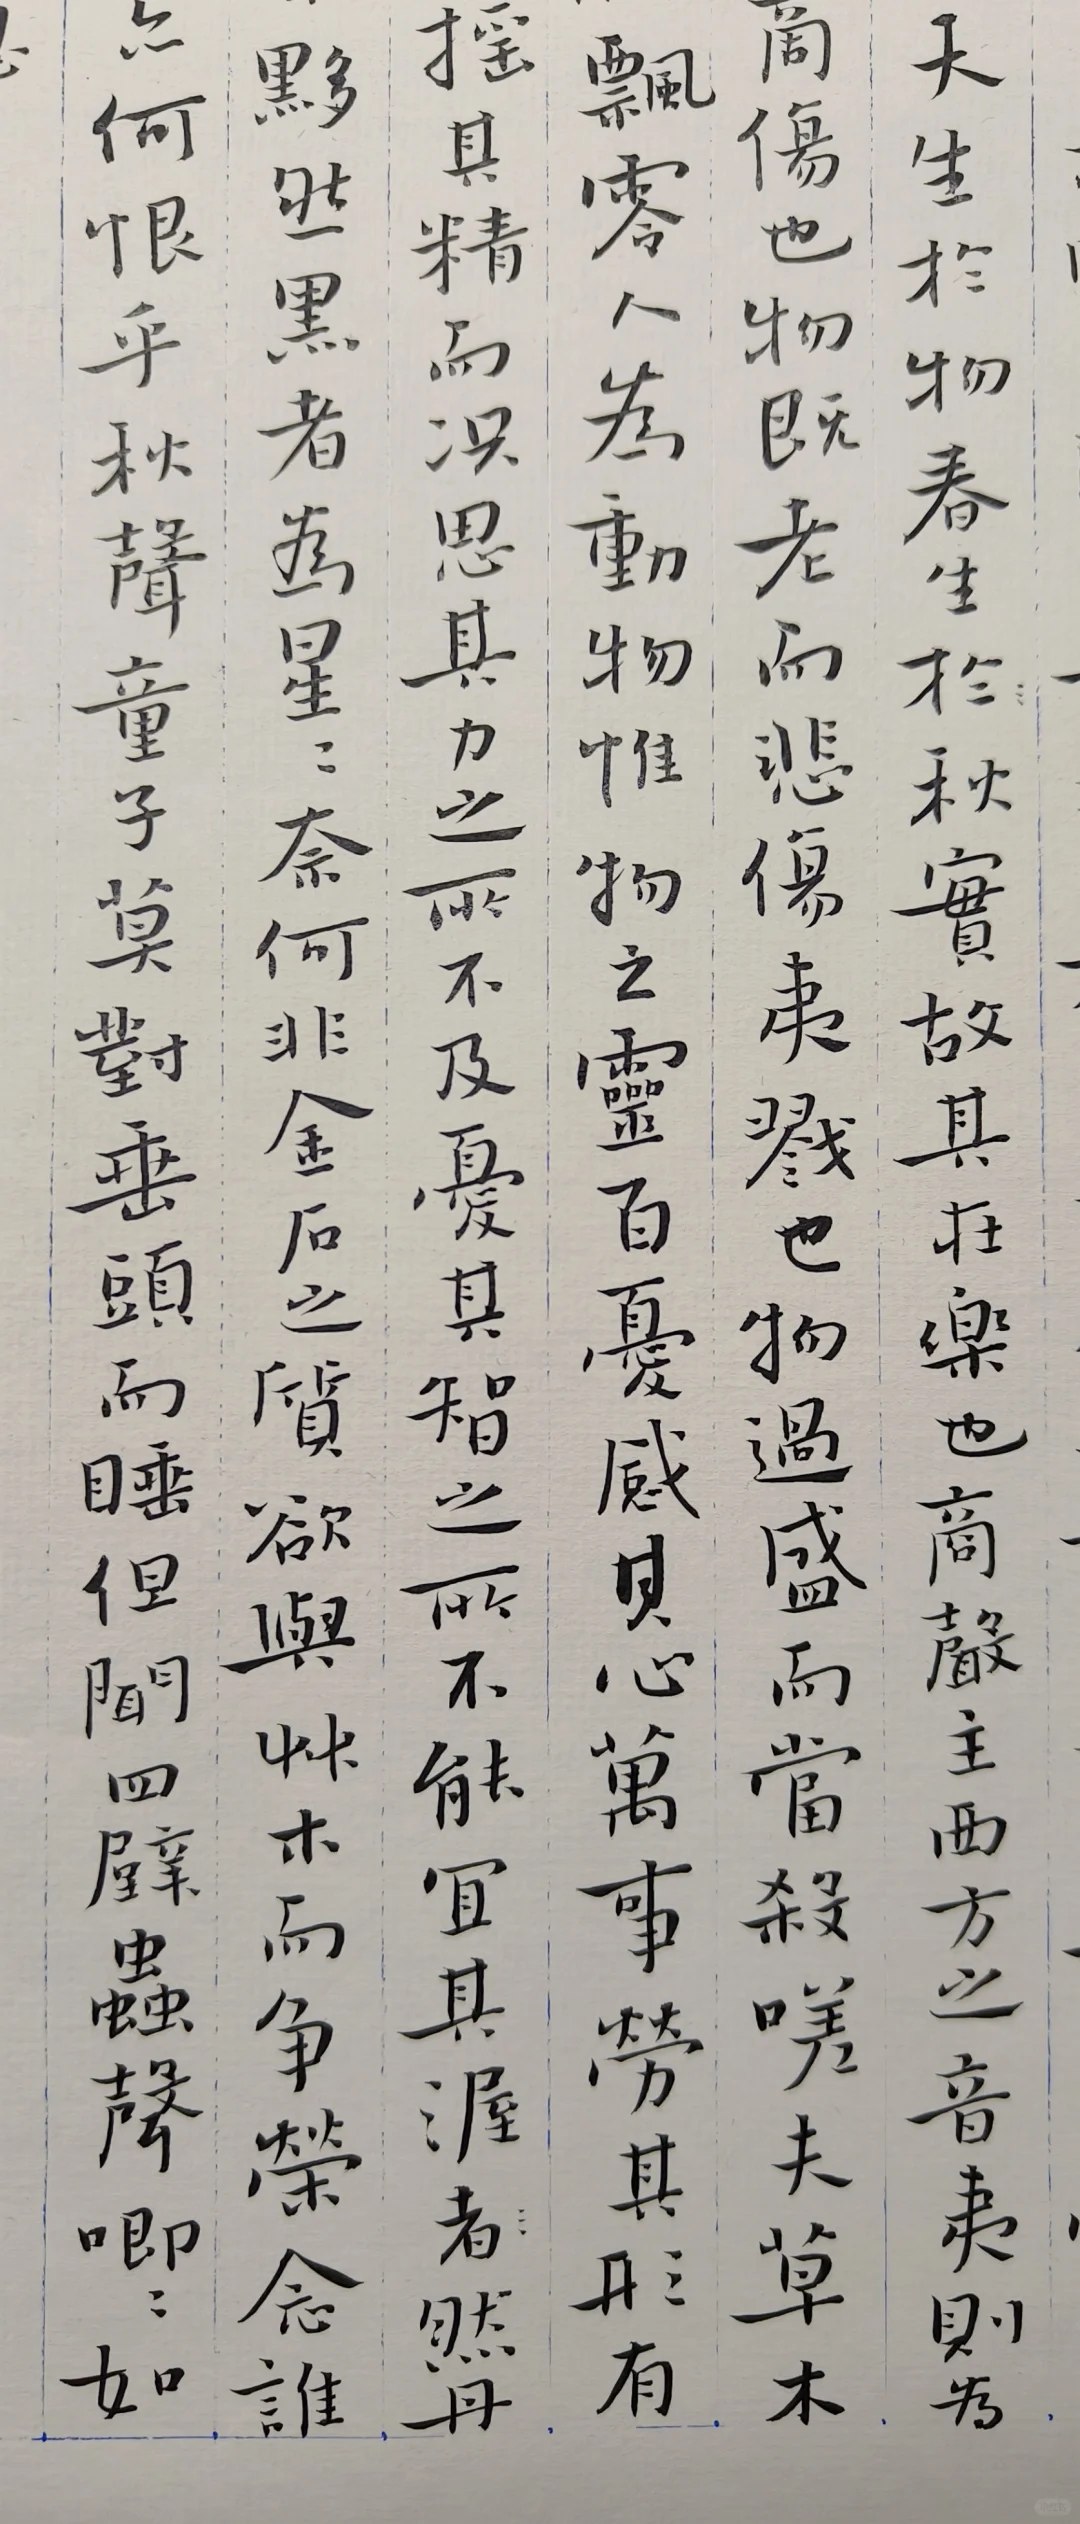 天生於物春生於秋實故其在樂也商聲主西方之音夷則為
商傷也物既老而悲傷夷戮也物過盛而當殺嗟夫草木
飄零人為動物惟物之靈百憂感其心萬事勞其形有
搖其精而况思其力之所不及憂其智之所不能宜其渥者然丹
黟然黑者為星〻奈何非金石之質欲與艸木而争榮念誰
亦何恨乎秋聲童子莫對垂頭而睡但聞四壁蟲聲唧〻如